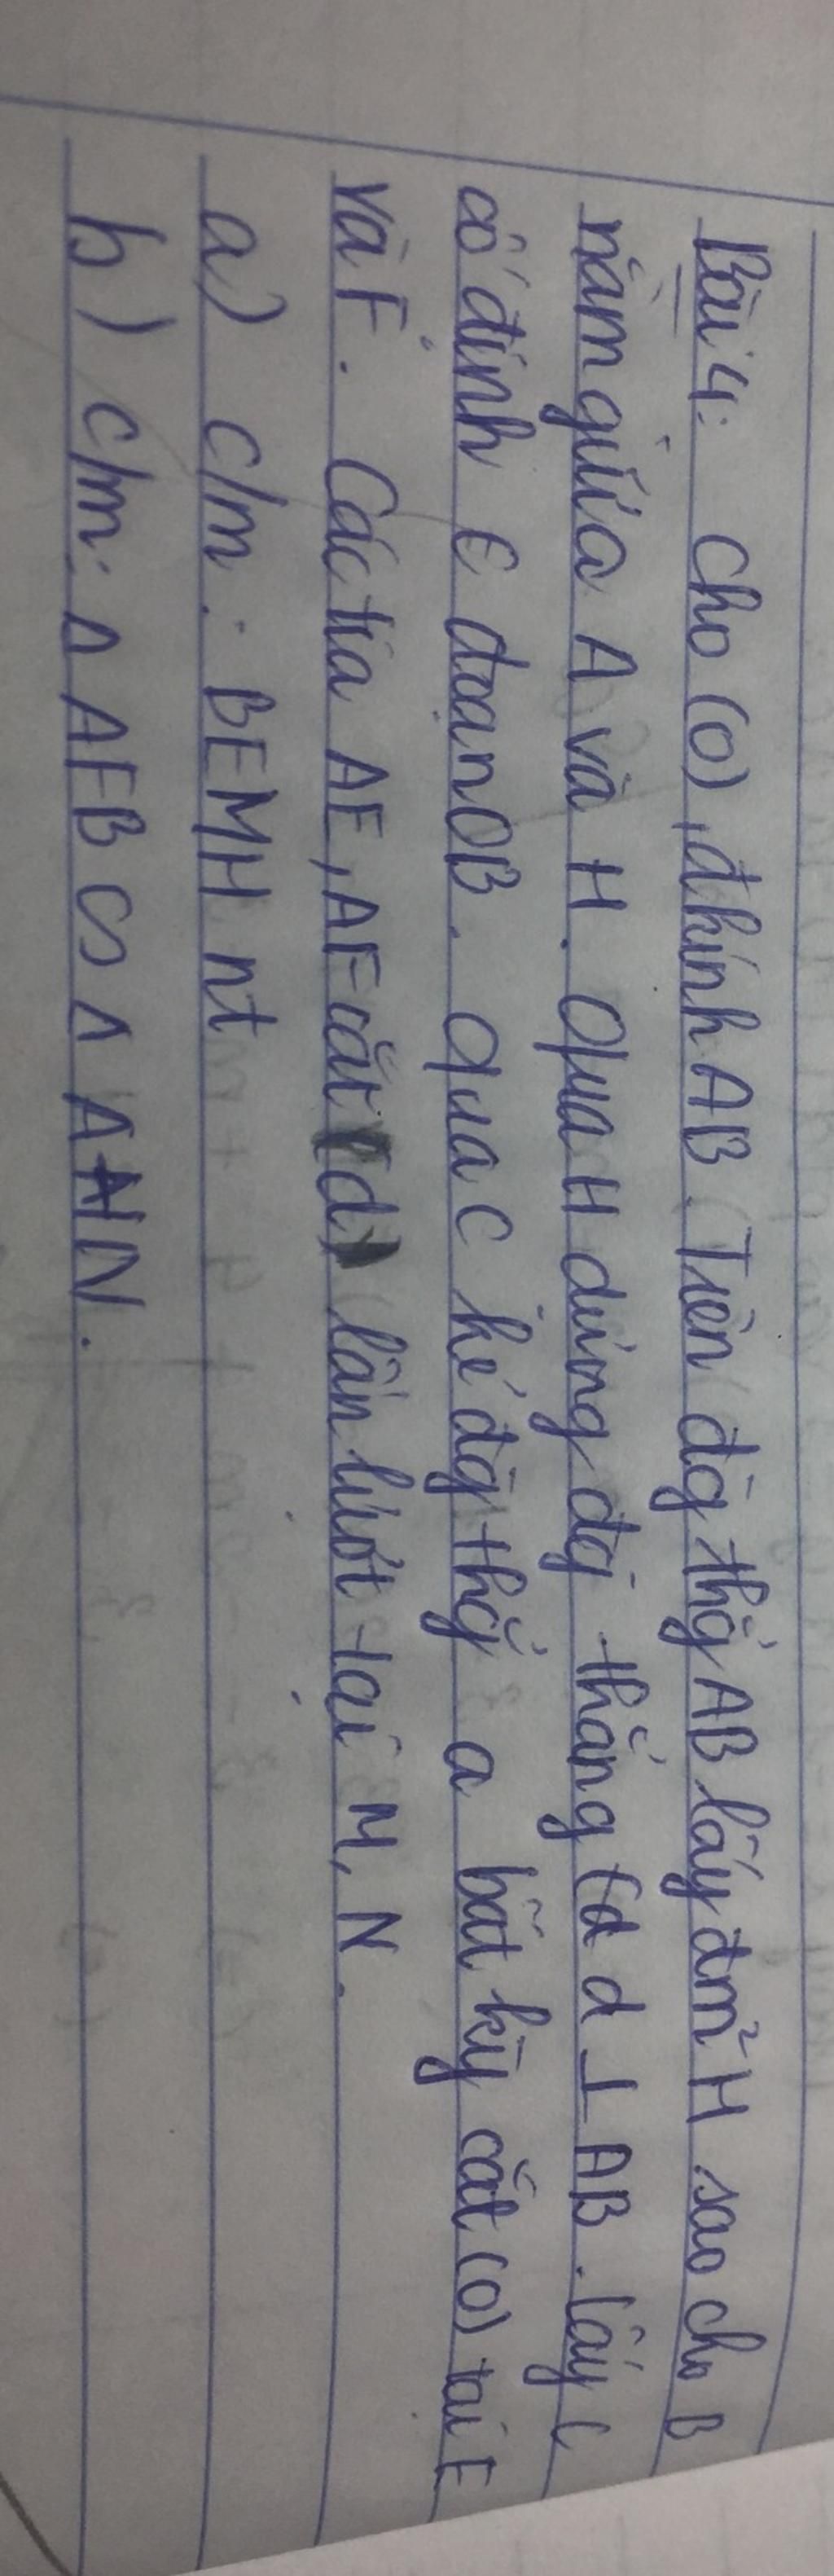 Bài 4: Cho (O), đkính AB. Trên đg thg̉ AB lấy đm̉ H sao cho B
nằm giữa A và H. Qua H dựng đg thẳng (d d ⊥ AB. Lấy C
cố định ∈ đoạn OB. Qua C kẻ đg thg̉ a bất kỳ cắt (O) tại E
và F. Các tia AE, AF cắt (d) lần lượt tại M, N.
a) c/m: BEMH nt
b) c/m: Δ AFB ∽ Δ AHN.